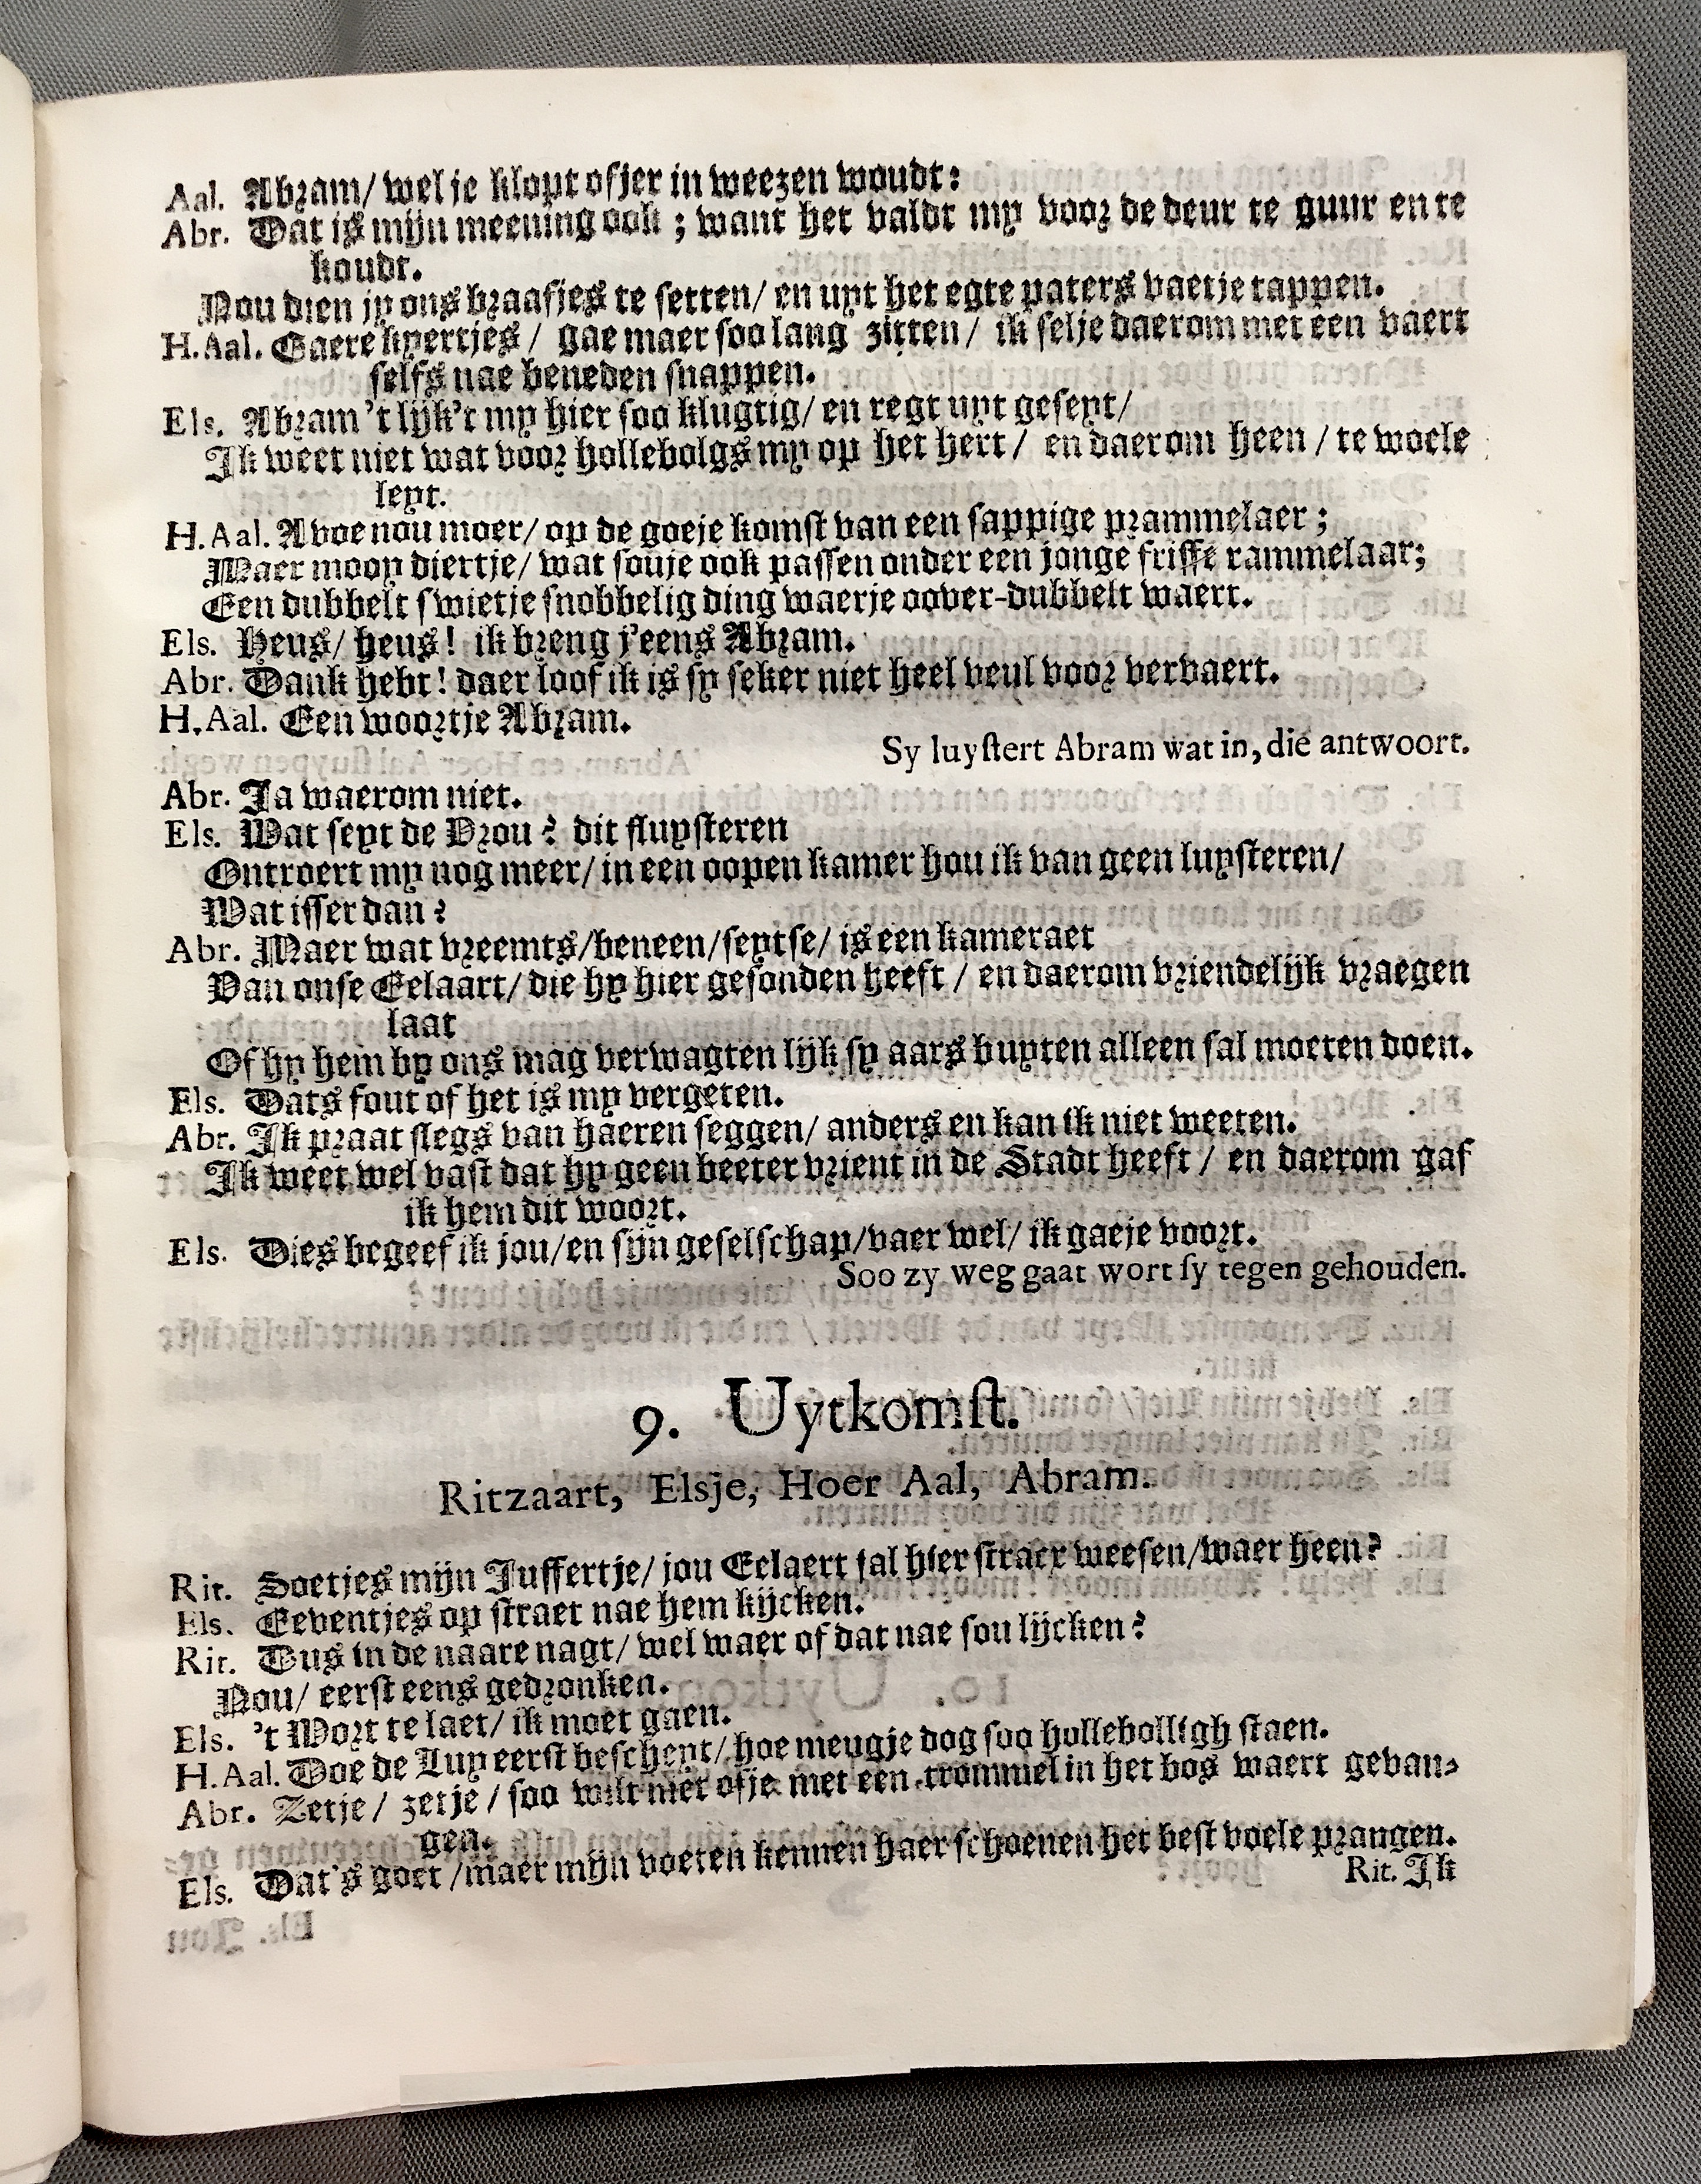 Aal. Abram/ wel je klopt ofjer in weezen woudt:
Abr. Dat is mijn meening ook; want het valdt my voor de deur te guur en te
koudt.
Nou dien jy ons braafjes te setten/ en uyt het egte paters vaetje tappen.
H.Aal. Gaere knertjes/ gae maer soo lang zitten/ ik selje daerom met een vaert
selfs nae beneden snappen.
Els. Abram 't lijk't my hier soo klugtig/ en regt uyt geseyt/
Ik weet niet wat voor hollebolgs my op het hert/ en daerom heen/ te woele
leyt.
H.Aal. Avoe nou moer/ op de goeje komst van een sappige prammelaer;
Maer mooy diertje/ wat souje ook passen onder een jonge frisse rammelaar;
Een dubbelt swietje snobbelig ding waerje oover-dubbelt waert.
Els. Heus/ heus! ik breng j'eens Abram.
Abr. Dank hebt! daer loof ik is sy seker niet heel veul voor vervaert.
H.Aal. Een woortje Abram.
Sy luystert Abram wat in, die antwoort.
Abr. Ja waerom niet.
Els. Wat seyt de Vrou? dit fluysteren
Ontroert my nog meer/ in een oopen kamer hou ik van geen luysteren/
Wat isser dan?
Abr. Maer wat vreemts/beneen/seytse/ is een kameraet
Van onse Eelaart/ die hy hier gesonden heeft/ en daerom vriendelijk vraegen
laat
Of hy hem by ons mag verwagten lijk sy aars buyten alleen sal moeten doen.
Els. Dats fout of het is my vergeten.
Abr. Ik praat slegs van haeren seggen/ anders en kan ik niet weeten.
Ik weet wel vast dat hy geen beeter vrient in de Stadt heeft/ en daerom gaf
ik hem dit woort.
Els. Dies begeef ik jou/en sijn geselschap/vaer wel/ ik gaeje voort.
Soo zy weg gaat wort sy tegen gehouden.
9. Uytkomst.
Ritzaart, Elsje, Hoer Aal, Abram.
Rit. Soetjes mijn Juffertje/ jou Eelaert sal hier straex weesen/waer heen?
Els. Eeventjes op straet nae hem kijcken.
Rit. Dus in de naare nagt/ wel waer of dat nae sou lijcken?
Nou/ eerst eens gedronken.
Els. 't Wort te laet/ ik moet gaen.
H.Aal. Doe de Luy eerst bescheyt/ hoe meugje dog soo hollebolligh staen.
Abr. Zetje/ zetje/ soo wilt niet ofje met een trommel in het bos waert gevan-
gen.
Els. Dat's goet/maer mijn voeten kennen haer schoenen het best voele prangen.
Rit. Ik